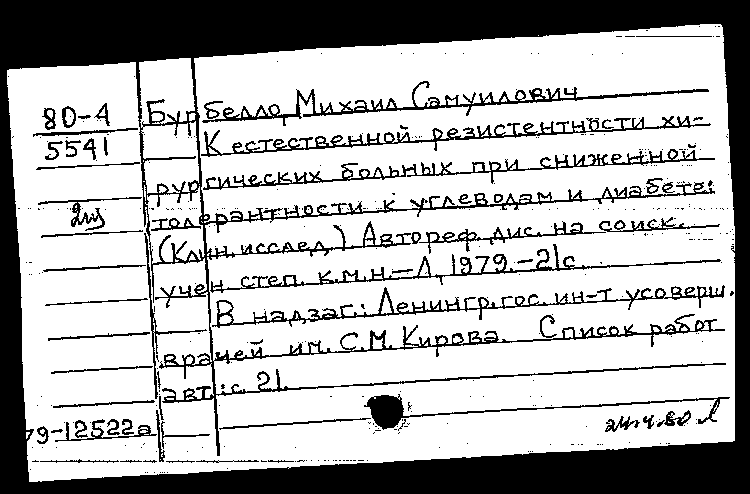 80-4
5541
2 из
Бурбелло, Михаил Самуилович
К естественной резистентности хи-
рургических больных при сниженной
толерантности к углеводам и диабете:
(Клин. исслед.). Автореф. дис. на соиск.
учен. степ. к.м.н.-Л., 1979.-21с.
В надзаг.: Ленингр. гос. ин-т усоверш.
врачей им. С.М. Кирова. Список работ
авт.: с. 21.
79-12522а